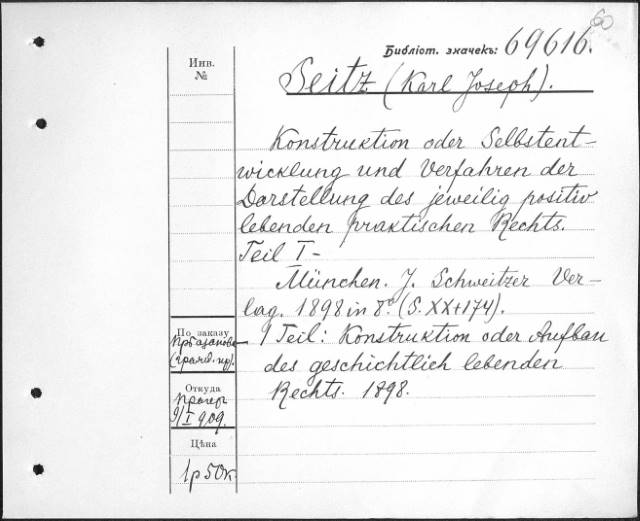 60
Библіот. значекъ: 69616.
Инв.
№
Seitz (Karl Joseph).
Konstruktion oder Selbstent-
wicklung und Verfahren der
Darstellung des jeweilig positiv
lebenden praktischen Rechts.
Teil I-
München. J. Schweitzer Ver-
lag. 1898 in 8º (S. XX+174).
1 Teil: Konstruktion oder Aufbau
des geschichtlich lebenden
Rechts. 1898.
По заказу
Откуда
9/I 909.
Цѣна
1р 50к